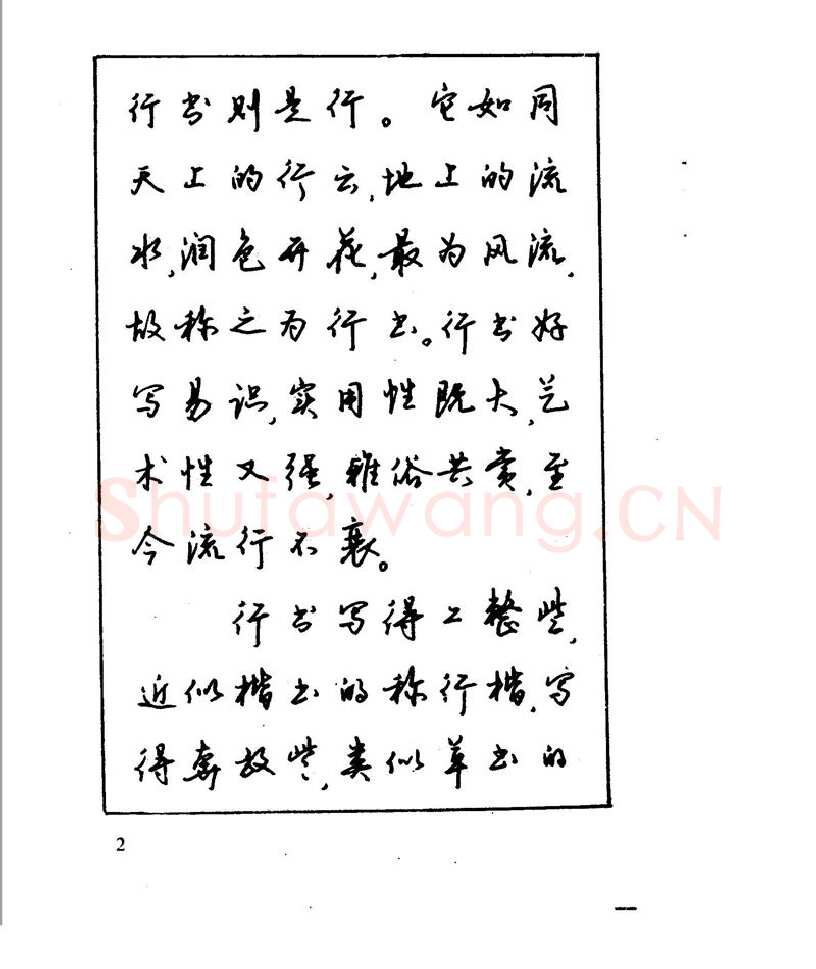 行书则是行。它如同
天上的行云,地上的流
水,润色开花,最为风流,
故称之为行书。行书好
写易识,实用性既大,艺
术性又强,雅俗共赏,至
今流行不衰。
行书写得工整些,
近似楷书的称行楷,写
得奔放些,类似草书的
2
Shufawang.CN